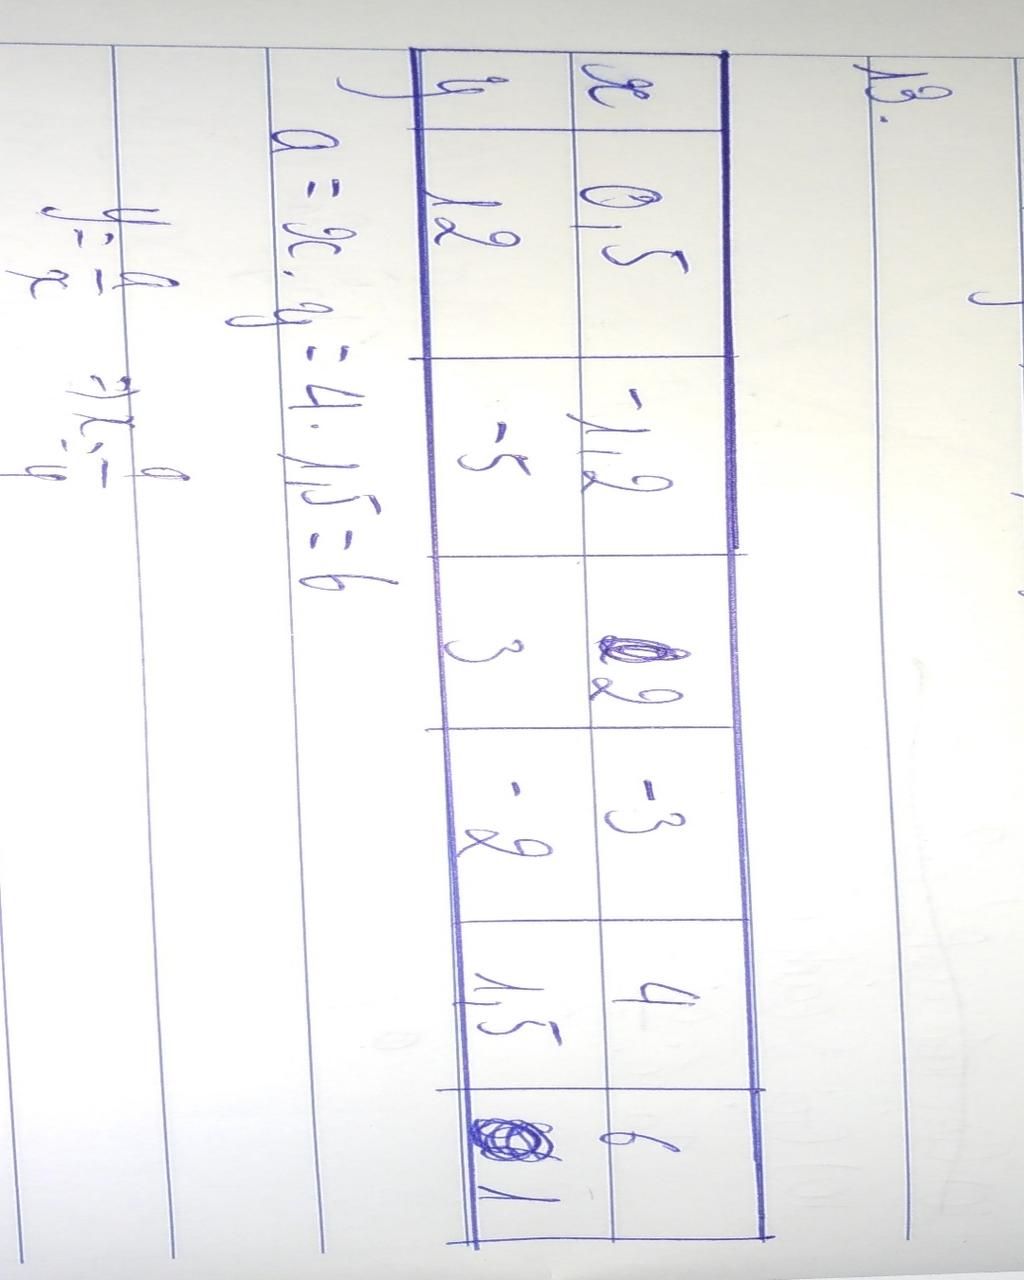 13.
x 0,5 -1,2 2 -3 4 6
y 12 -5 3 -2 1,5 1
a = x . y = 4 . 1,5 = 6
y = a/x => x = a/y